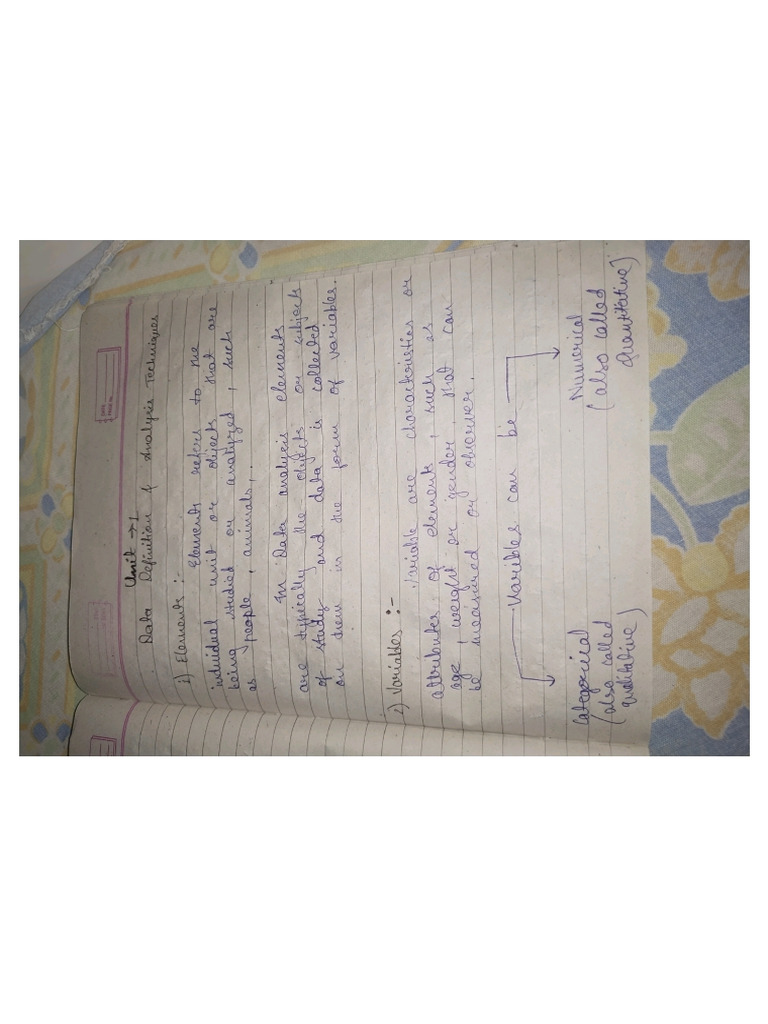 Unit → 1
Data Definition & Analysis Techniques
1) Elements :-
Elements refers to the
individual unit or objects that are
being studied or analyzed, such
as people, animals,..
In Data analysis elements
are typically the objects or subjects
of study and data is collected
on them in the form of variables.
2) Variables :-
Variable are characteristics or
attributes of elements, such as
age, weight or gender, that can
be measured or observer.
Varibles can be
Categorical
(also called
qualitative)
Numerical
(also called
Quantitative)
DATE